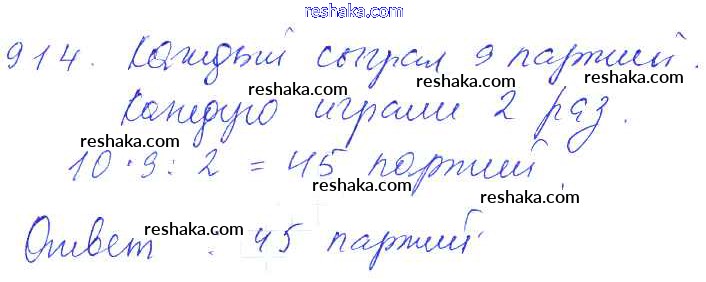 reshaka.com
914. Каждый сыграл 9 партий.
reshaka.com
reshaka.com
Каждую играли 2 раз.
reshaka.com
reshaka.com
10·9:2 = 45 партий.
reshaka.com
reshaka.com
reshaka.com
reshaka.com
Ответ: 45 партий.